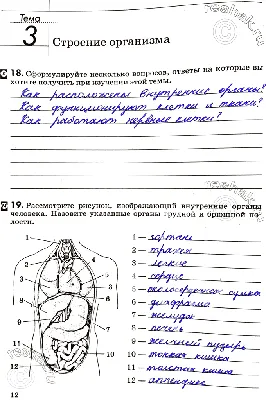 Тема
3
Строение организма
18. Сформулируйте несколько вопросов, ответы на которые вы
хотите получить при изучении этой темы.
Как расположены внутренние органы?
Как функционируют клетки и ткани?
Как работают нервные клетки?
19. Рассмотрите рисунок, изображающий внутренние органы
человека. Назовите указанные органы грудной и брюшной по-
лости.
1 — гортань
2 — трахея
3 — легкие
4 — сердце
5 — околосердечная сумка
6 — диафрагма
7 — желудок
8 — печень
9 — желчный пузырь
10 — тонкая кишка
11 — толстая кишка
12 — аппендикс
1
2
3
4
5
6
7
8
9
10
11
12
12